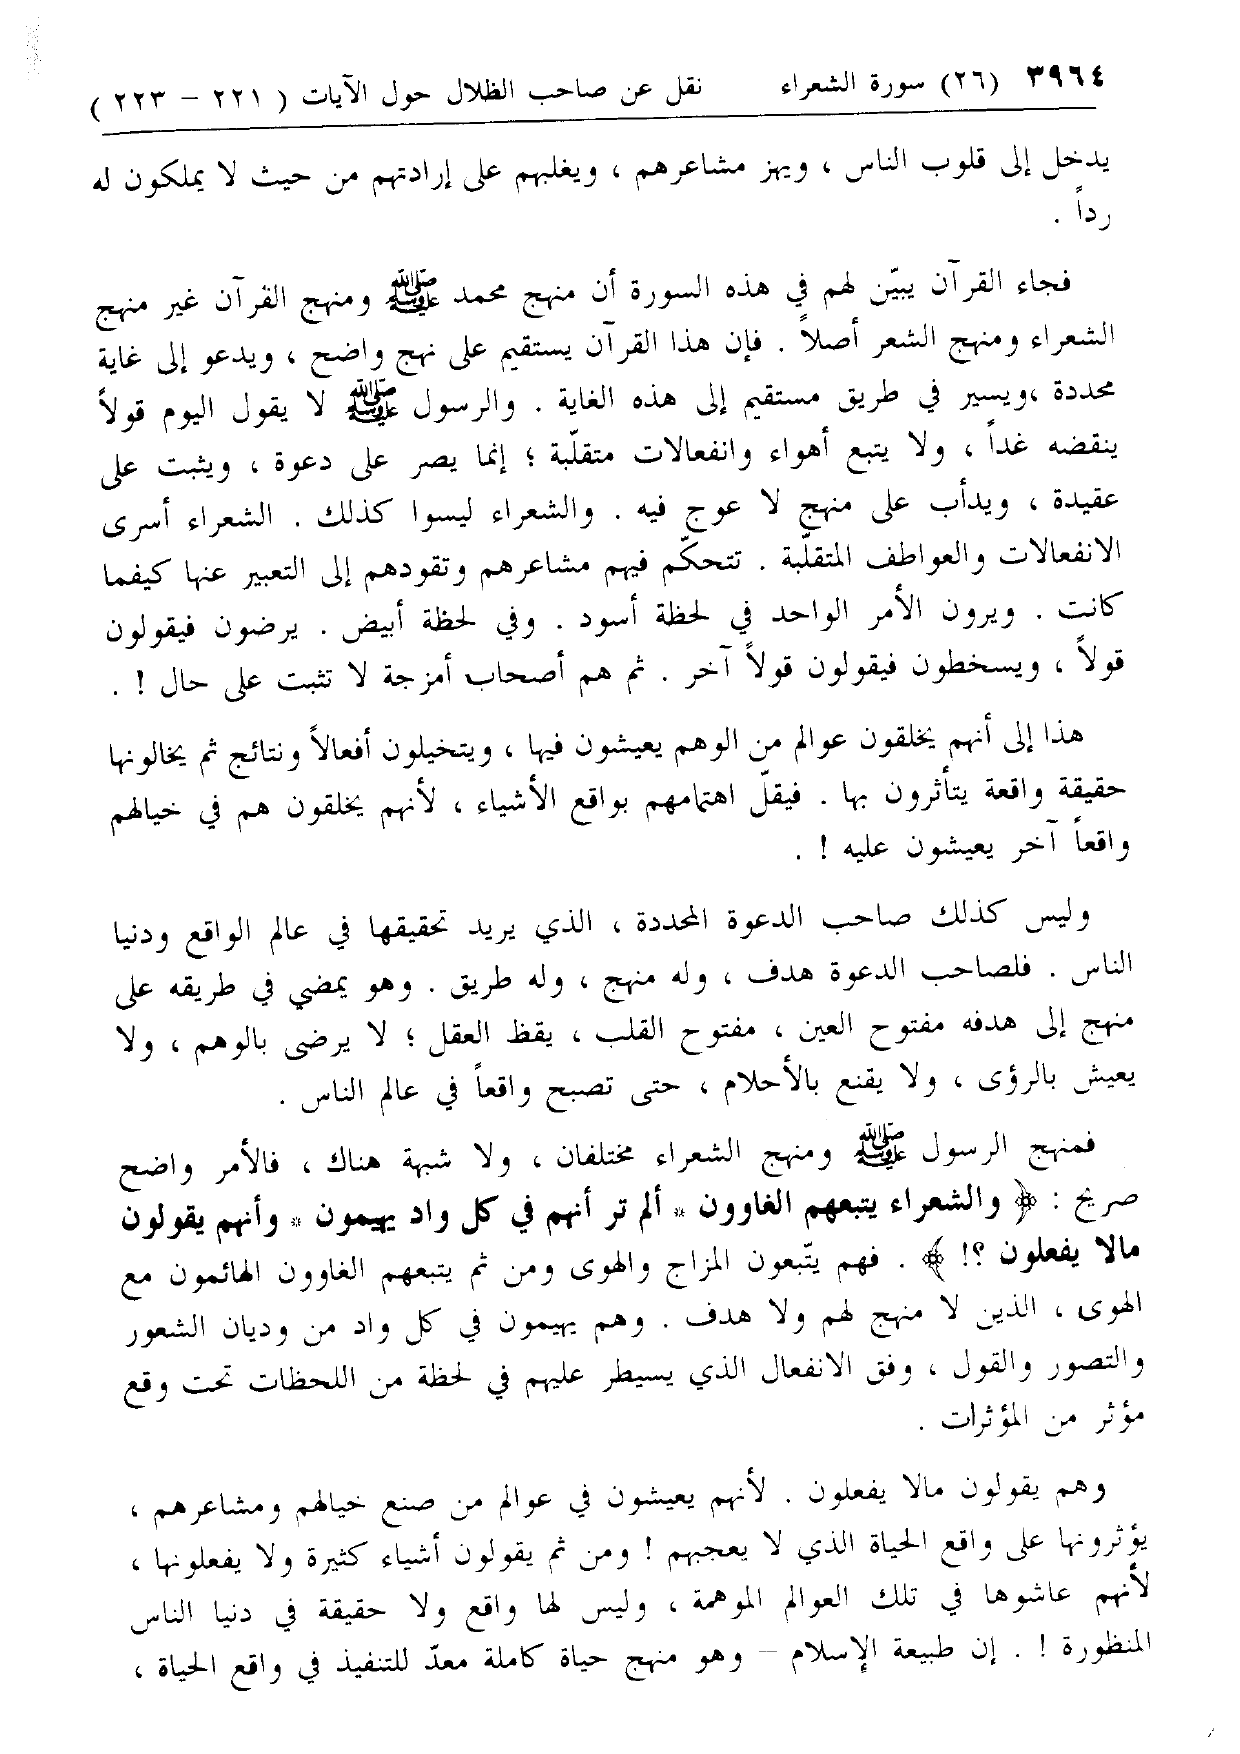 ٣٩٦٤ (٢٦) سورة الشعراء نقل عن صاحب الظلال حول الآيات ( ٢٢١ – ٢٢٣ )
يدخل إلى قلوب الناس ، ويهز مشاعرهم ، ويغلبهم على إرادتهم من حيث لا يملكون له
رداً .
فجاء القرآن يبيّن لهم في هذه السورة أن منهج محمد ﷺ ومنهج القرآن غير منهج
الشعراء ومنهج الشعر أصلاً . فإن هذا القرآن يستقيم على نهج واضح ، ويدعو إلى غاية
محددة ،ويسير في طريق مستقيم إلى هذه الغاية . والرسول ﷺ لا يقول اليوم قولاً
ينقضه غداً ، ولا يتبع أهواء وانفعالات متقلّبة ؛ إنما يصر على دعوة ، ويثبت على
عقيدة ، ويدأب على منهج لا عوج فيه . والشعراء ليسوا كذلك . الشعراء أسرى
الانفعالات والعواطف المتقلّبة . تتحكّم فيهم مشاعرهم وتقودهم إلى التعبير عنها كيفما
كانت . ويرون الأمر الواحد في لحظة أسود . وفي لحظة أبيض . يرضون فيقولون
قولاً ، ويسخطون فيقولون قولاً آخر . ثم هم أصحاب أمزجة لا تثبت على حال ! .
هذا إلى أنهم يخلقون عوالم من الوهم يعيشون فيها ، ويتخيلون أفعالاً ونتائج ثم يخالونها
حقيقة واقعة يتأثرون بها . فيقلّ اهتمامهم بواقع الأشياء ، لأنهم يخلقون هم في خيالهم
واقعاً آخر يعيشون عليه ! .
وليس كذلك صاحب الدعوة المحددة ، الذي يريد تحقيقها في عالم الواقع ودنيا
الناس . فلصاحب الدعوة هدف ، وله منهج ، وله طريق . وهو يمضي في طريقه على
منهج إلى هدفه مفتوح العين ، مفتوح القلب ، يقظ العقل ؛ لا يرضى بالوهم ، ولا
يعيش بالرؤى ، ولا يقنع بالأحلام ، حتى تصبح واقعاً في عالم الناس .
فمنهج الرسول ﷺ ومنهج الشعراء مختلفان ، ولا شبهة هناك ، فالأمر واضح
صريح : ﴿ والشعراء يتبعهم الغاوون * ألم تر أنهم في كل واد يهيمون * وأنهم يقولون
مالا يفعلون ؟! ﴾ . فهم يتّبعون المزاج والهوى ومن ثم يتبعهم الغاوون الهائمون مع
الهوى ، الذين لا منهج لهم ولا هدف . وهم يهيمون في كل واد من وديان الشعور
والتصور والقول ، وفق الانفعال الذي يسيطر عليهم في لحظة من اللحظات تحت وقع
مؤثر من المؤثرات .
وهم يقولون مالا يفعلون . لأنهم يعيشون في عوالم من صنع خيالهم ومشاعرهم ،
يؤثرونها على واقع الحياة الذي لا يعجبهم ! ومن ثم يقولون أشياء كثيرة ولا يفعلونها ،
لأنهم عاشوها في تلك العوالم الموهمة ، وليس لها واقع ولا حقيقة في دنيا الناس
المنظورة ! . إن طبيعة الإسلام – وهو منهج حياة كاملة معدّ للتنفيذ في واقع الحياة ،